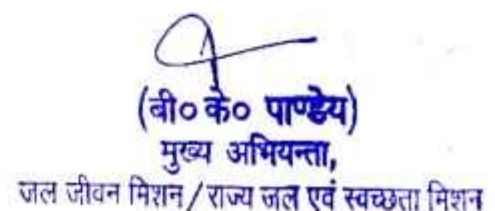 (बी० के० पाण्डेय)
मुख्य अभियन्ता,
जल जीवन मिशन/राज्य जल एवं स्वच्छता मिशन